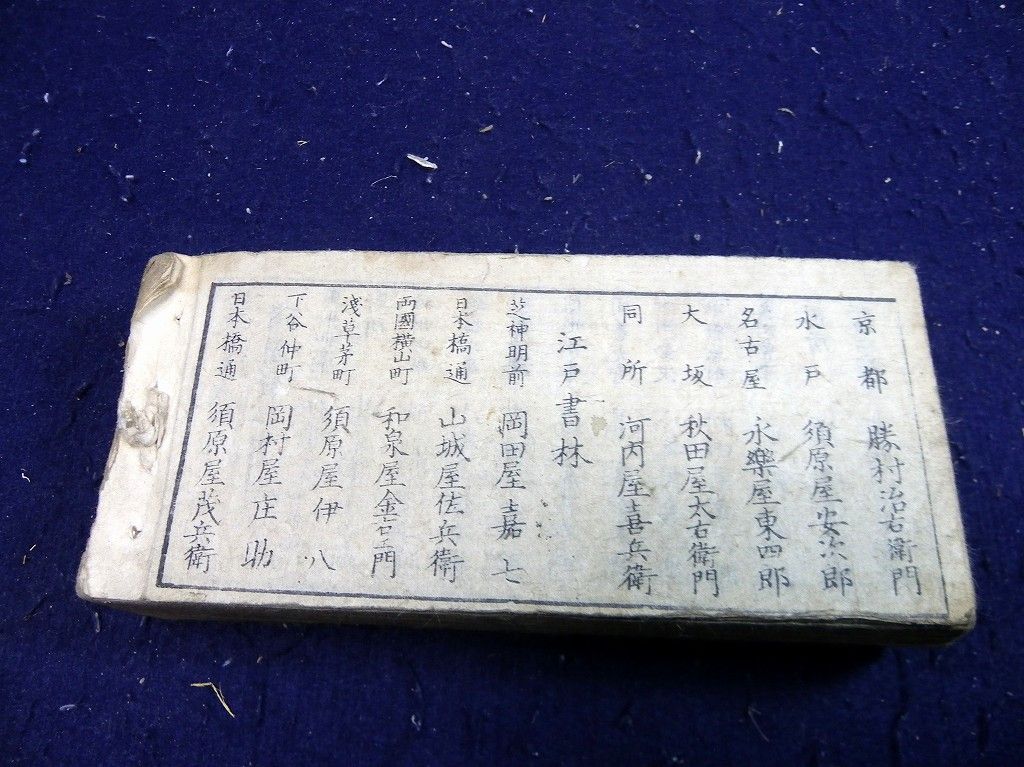 京都 勝村治右衛門
水戸 須原屋安次郎
名古屋 永樂屋東四郎
大坂 秋田屋太右衛門
同所 河内屋喜兵衛
江戸書林
芝神明前 岡田屋嘉七
日本橋通 山城屋佐兵衛
両國横山町 和泉屋金右衛門
淺草茅町 須原屋伊八
下谷仲町 岡村屋庄助
日本橋通 須原屋茂兵衛